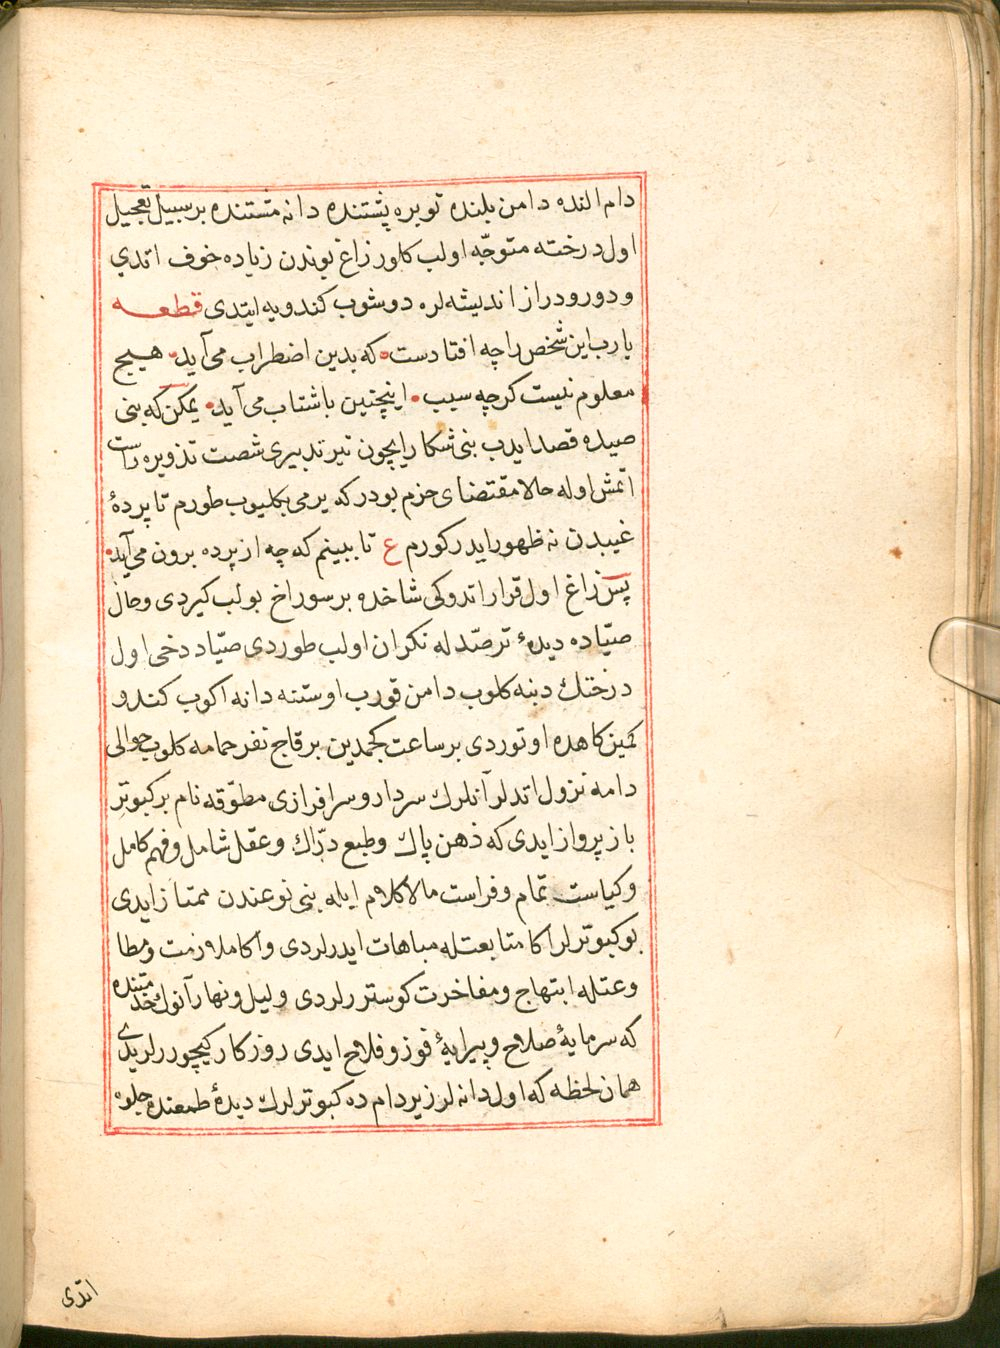 دام النده دامن بلنده توبره پشتنده دانه مشتنده بر سبیل تعجیل
اول درخته متوجّه اولب کلور زاغ بوندن زیاده خوف اتدی
و دور و دراز اندیشه لره دوشوب کندویه ایتدی قطعه
یارب این شخص را چه افتادست که بدین اضطراب می آید هیچ
معلوم نیست کز چه سبب اینچنین باشتاب می آید یمکن که بنی
صیده قصد ایدب بنی شکار ایچون تیر تدبیری شصت تذویره راست
اتمش اوله حالا مقتضای حزم بودر که یرمی بکلیوب طورم تا پردهٔ
غیبدن نه ظهور ایدر کورم ع تا ببینم که چه از پرده برون می آید
پس زاغ اول قرار اتدوکی شاخده بر سوراخ بولب کیردی و حال
صیّاده دیدهٔ ترصّد له نکران اولب طوردی صیّاد دخی اول
درختك دبنه کلوب دامن قورب اوستنه دانه اکوب کندو
کمین کاهده اوتوردی بر ساعت کچمدین بر قاچ نفر حمامه کلوب حوالی
دامه نزول اتدلر آنلرك سردار و سرافرازی مطوّقه نام بر کبوتر
باز پرواز ایدی که ذهن پاك و طبع درّاك و عقل شامل و فهم کامل
و کیاست تمام و فراست مالاکلام ایله بنی نوعندن ممتاز ایدی
بو کبوترلر اکا متابعتله مباهات ایدرلردی و اکا ملازمت و مطا
وعتله ابتهاج و مفاخرت کوستررلردی و لیل و نهار آنوك خدمتنده
که سرمایهٔ صلاح و پیرایهٔ فوز و فلاح ایدی روزکار کچوررلریدی
همان لحظه که اول دانه لر زیر دامده کبوترلرك دیدهٔ طمعنده جلوه
اتدی